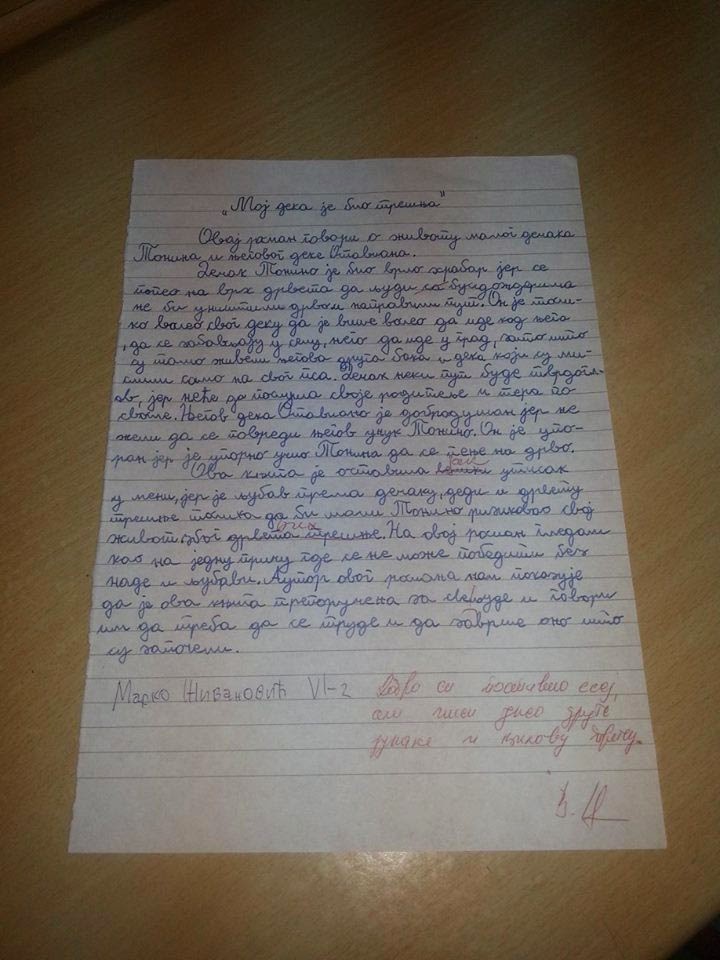 „Мој дека је био трешња"
Овај роман говори о животу малог дечака
Тонина и његовог деке Отавиана.
Дечак Тонино је био врло храбар јер се
попео на врх дрвета да људи са булдождерима
не би уништили дрво и направили пут. Он је толи-
ко волео свог деку да је више волео да иде код њега
, да се забављају у селу, него да иде у град, зато што
су тамо живели његова друга бака и дека који су ми-
слили само на свог пса. Дечак неки пут буде твдогл-
ав, јер неће да послуша своје родитеље и тера по
своме. Његов дека Отавиано је добродушан јер не
жели да се повреди његов унук Тонино. Он је упо-
ран јер је упорно учио Тонина да се пење на дрво.
Ова књига је оставила јак утисак
у мени, јер је љубав према дечаку, деди и дрвету
трешње толика да би мали Тонино ризиковао свој
живот због дрвета трешње. На овај роман гледам
као на једну причу где се не може победити без
наде и љубави. Аутор овог романа нам показује
да је ова књига препоручена за све људе и говори
им да треба да се труде и да заврше оно што
су започели.
Марко Живановић VI-2
Добро си поставио есеј,
али ниси унео друге
јунаке и њихову